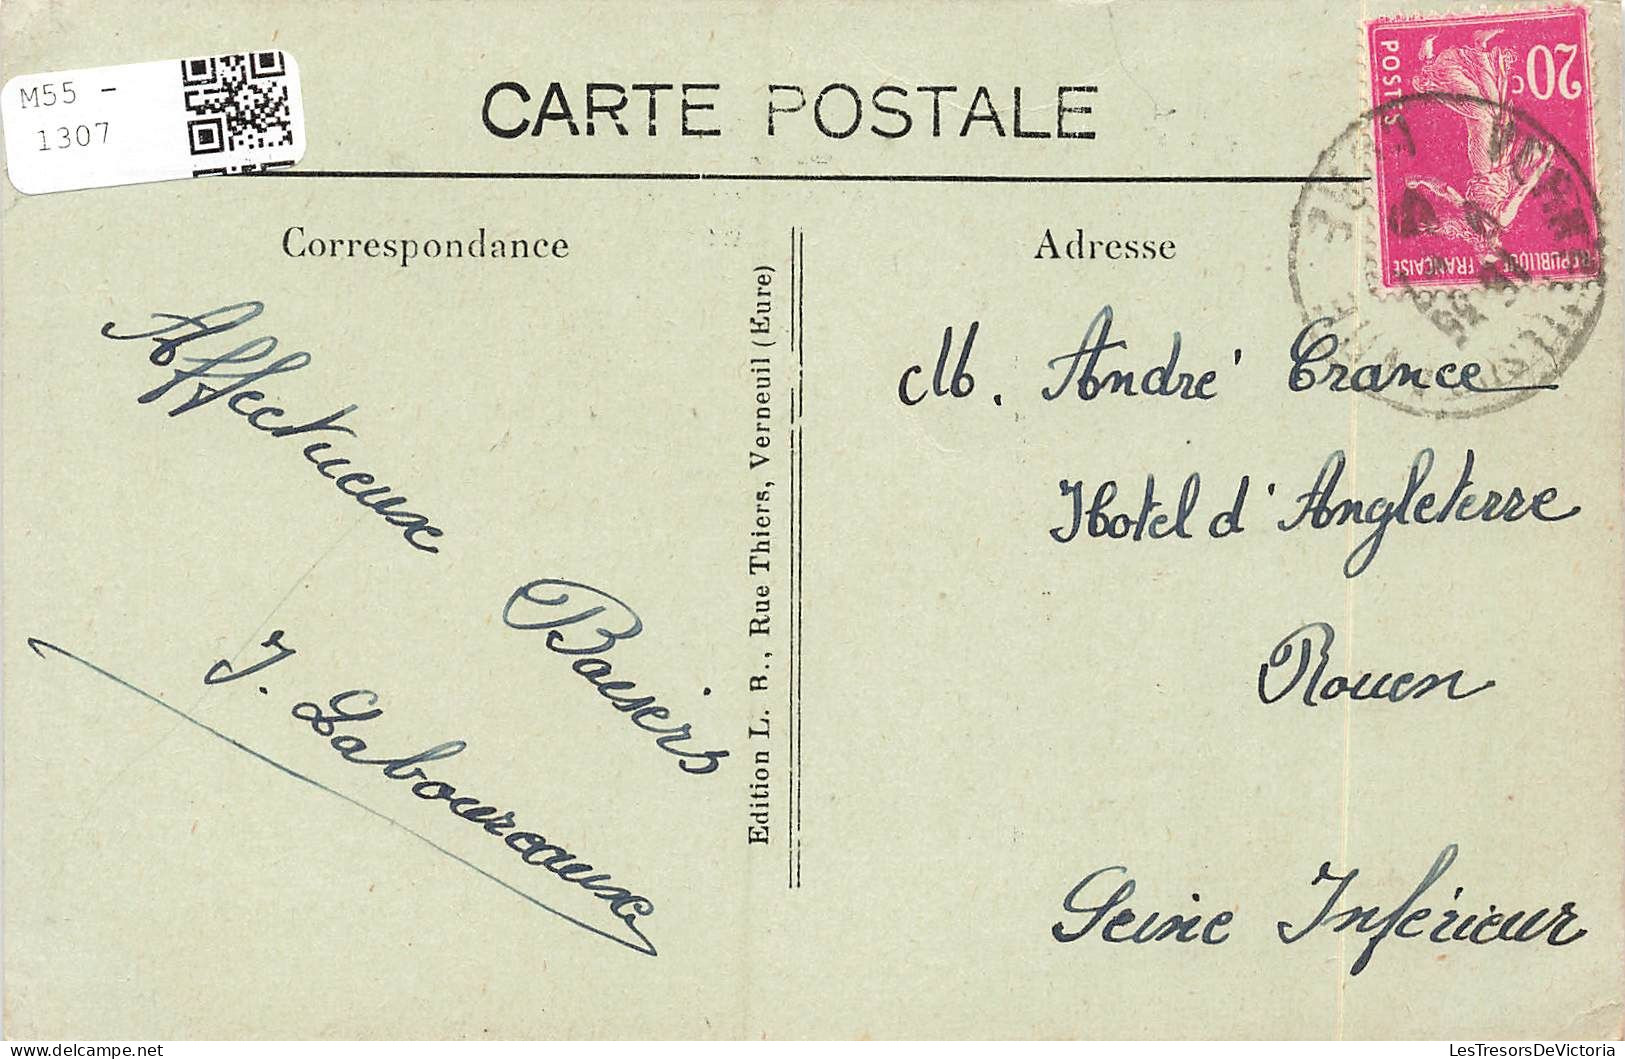 M55 -
1307
CARTE POSTALE
20c
POSTES
REPUBLIQUE FRANÇAISE
Correspondance
Adresse
Affectueux
Baisers
J. Laboureaux
Edition L. B., Rue Thiers, Verneuil (Eure)
M. André France
Hotel d'Angleterre
Rouen
Seine Inférieur
EURE
LesTresorsDeVictoria